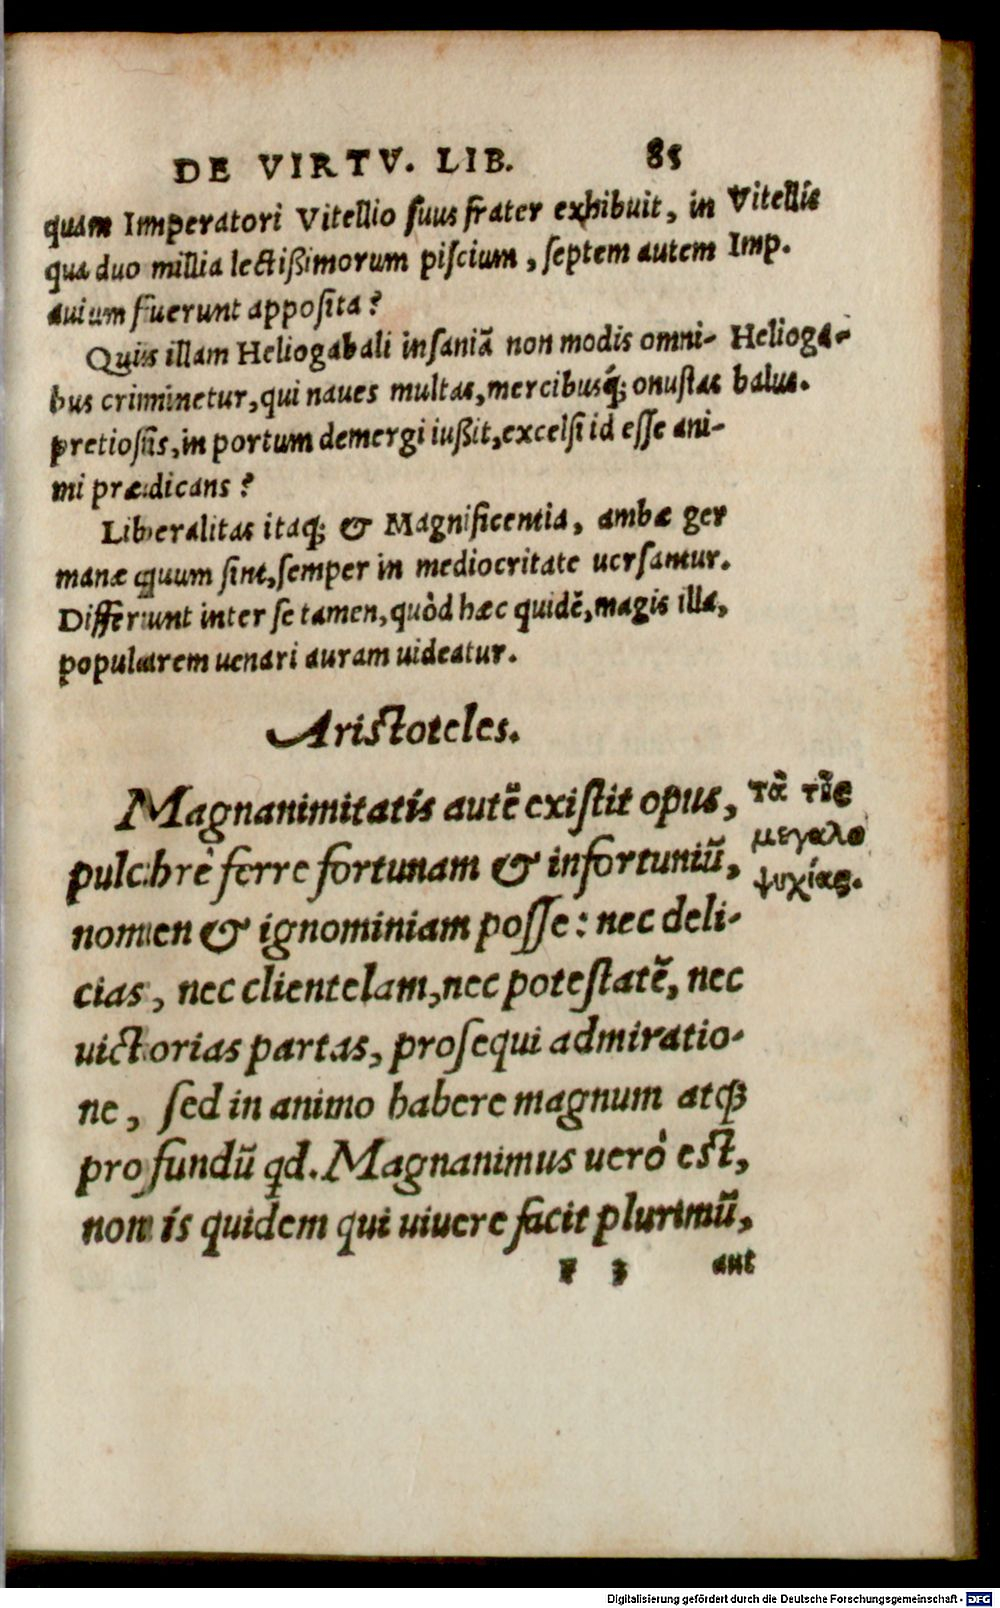 DE VIRTV. LIB. 85
quam Imperatori Vitellio suus frater exhibuit, in Vitellis
qua duo millia lectißimorum piscium, septem autem Imp.
auium fuerunt apposita?
Quis illam Heliogabali insaniã non modis omni- Helioga-
bus criminetur, qui naues multas, mercibusq́; onustas balus.
pretiosis, in portum demergi iußit, excelsi id esse ani-
mi prædicans?
Liberalitas itaq; & Magnificentia, ambæ ger
manæ quum sint, semper in mediocritate uersantur.
Differunt inter se tamen, quòd hæc quidẽ, magis illa,
popularem uenari auram uideatur.
Aristoteles.
Magnanimitatis autẽ existit opus, τὰ τῆς
pulchrè ferre fortunam & infortuniũ, μεγαλο
nomen & ignominiam posse: nec deli- ψυχίας.
cias, nec clientelam, nec potestatẽ, nec
uictorias partas, prosequi admiratio-
ne, sed in animo habere magnum atq;
profundũ qd. Magnanimus uerò est,
non is quidem qui uiuere facit plurimũ,
F 3 aut
Digitalisierung gefördert durch die Deutsche Forschungsgemeinschaft - DFG